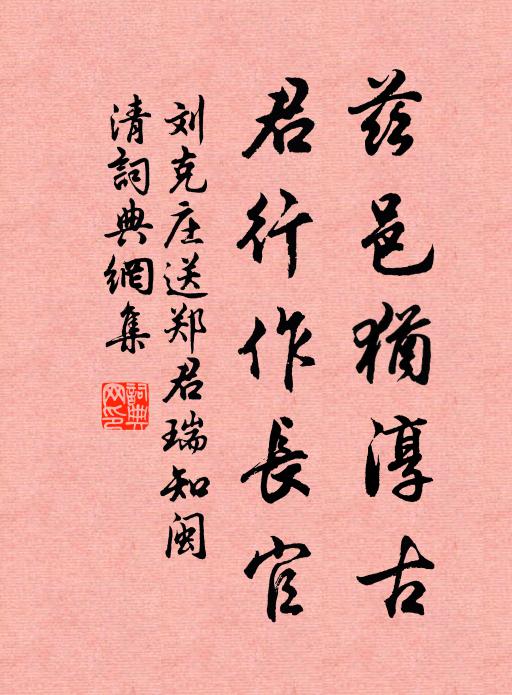 兹邑犹淳古
君行作長官
刘克庄送郑君瑞知闽
清詞典網集
詞典
网印